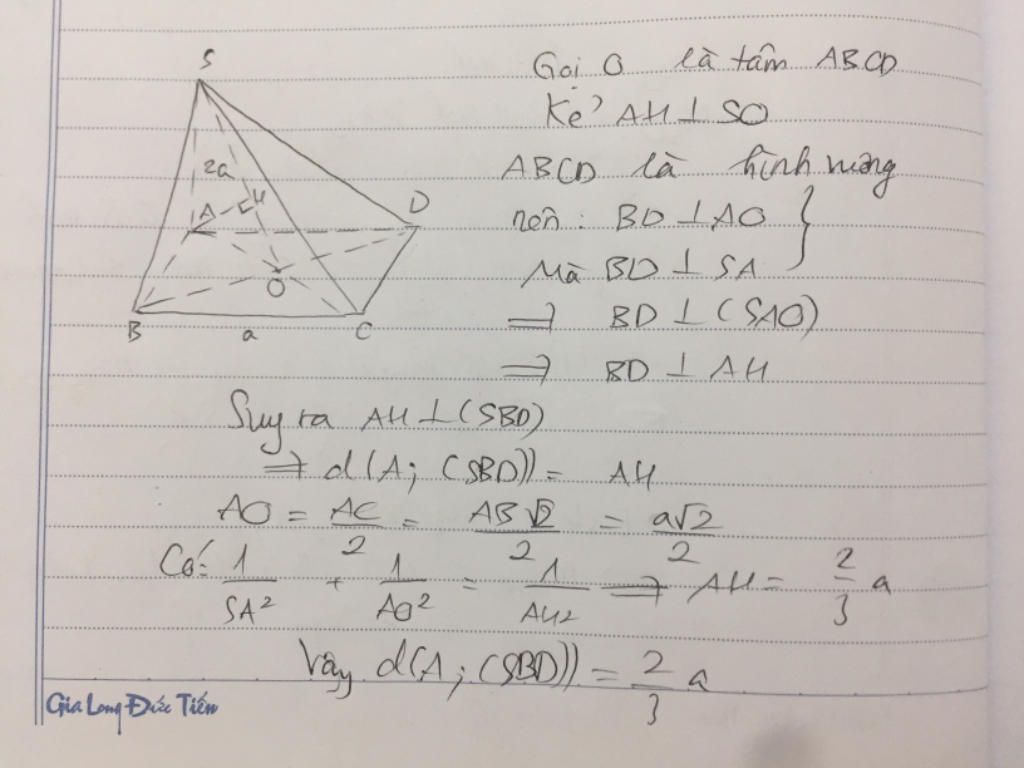 S
2a
A
H
D
O
B
a
C
Gọi O là tâm ABCD
Kẻ AH ⊥ SO
ABCD là hình vuông
nên: BD ⊥ AO
Mà BD ⊥ SA
⇒ BD ⊥ (SAO)
⇒ BD ⊥ AH
Suy ra AH ⊥ (SBD)
⇒ d(A; (SBD)) = AH
AO = AC/2 = AB√2/2 = a√2/2
Có: 1/SA² + 1/AO² = 1/AH² ⇒ AH = 2/3 a
Vậy d(A; (SBD)) = 2/3 a
Gia Long Đức Tiến